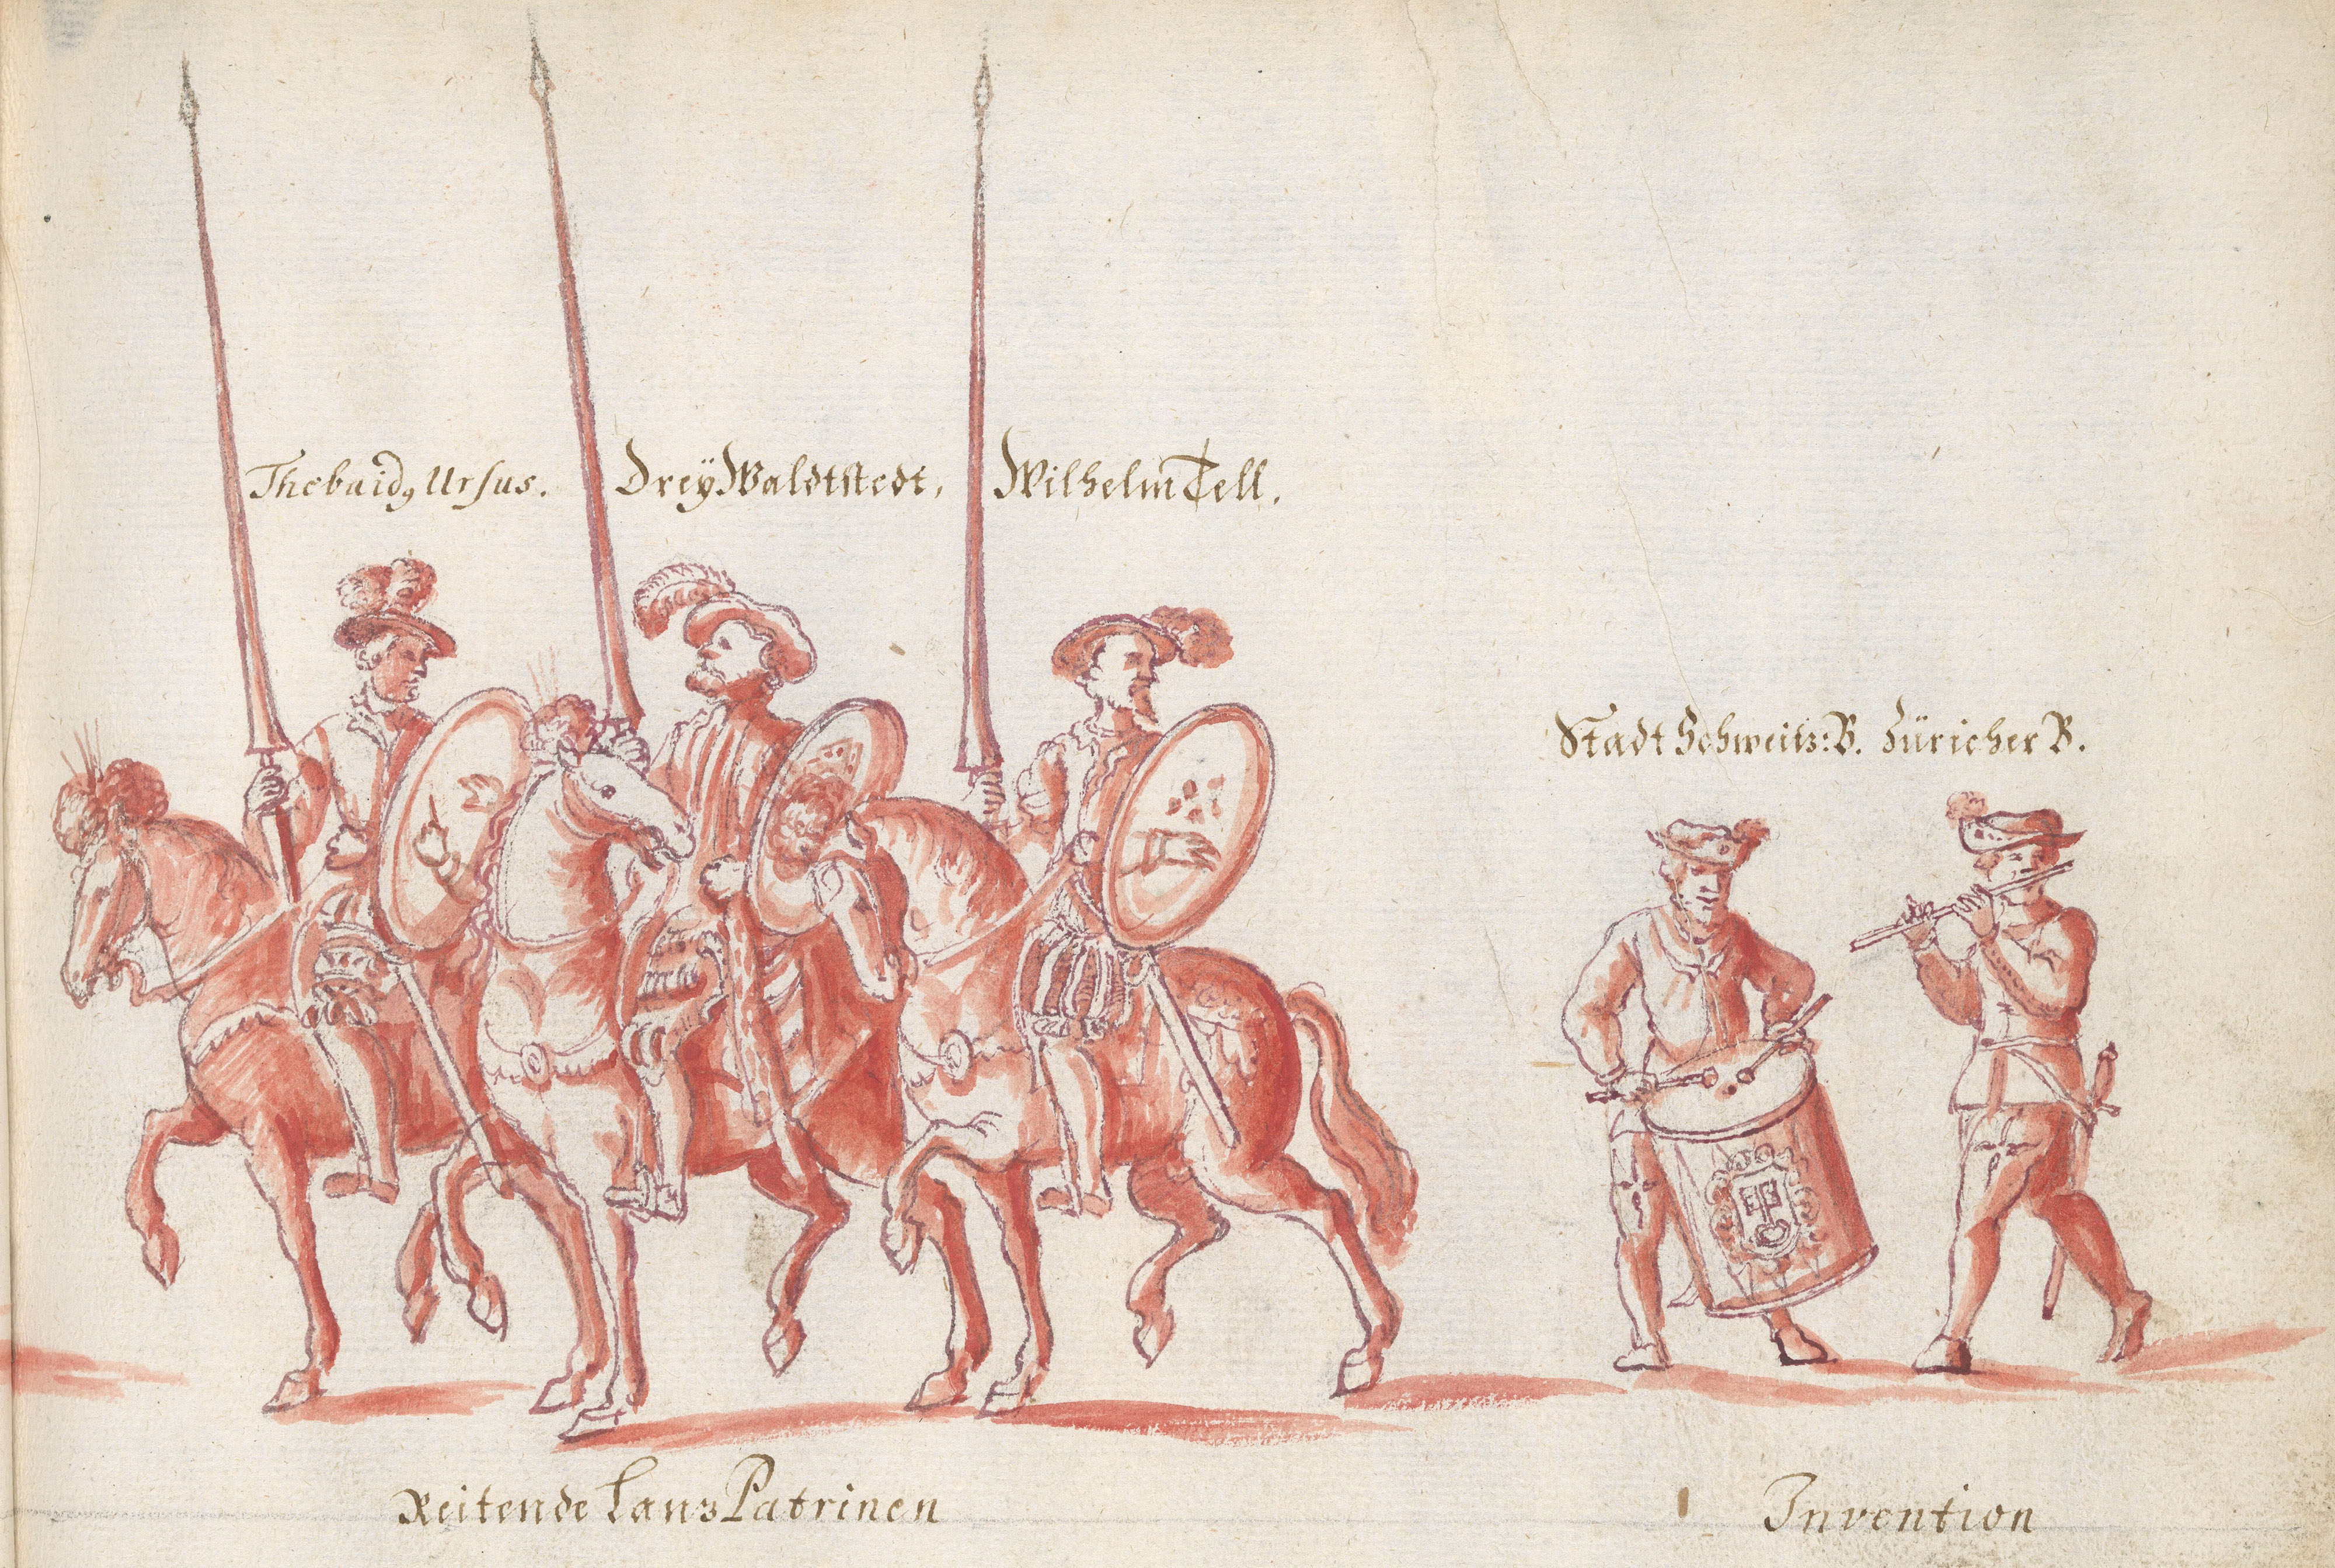 Thebaid9 Ursus. Dreÿ Waldtstedt, Wilhelm Tell.
Stadt Schweitz: B. Züricher B.
Reitende Lanz Patrinen
Invention